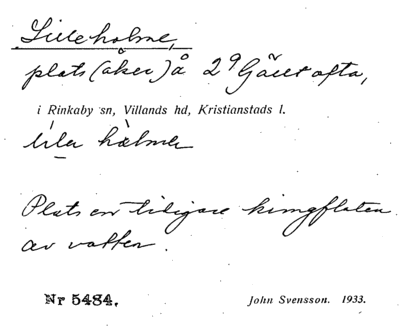 Lilleholme,
plats (åker) å 29 Gärestofta,
i Rinkaby sn, Villands hd, Kristianstads l.
lila hàlmer
Platsen tidigare kringfluten
av vatten.
Nr 5484.
John Svensson. 1933.